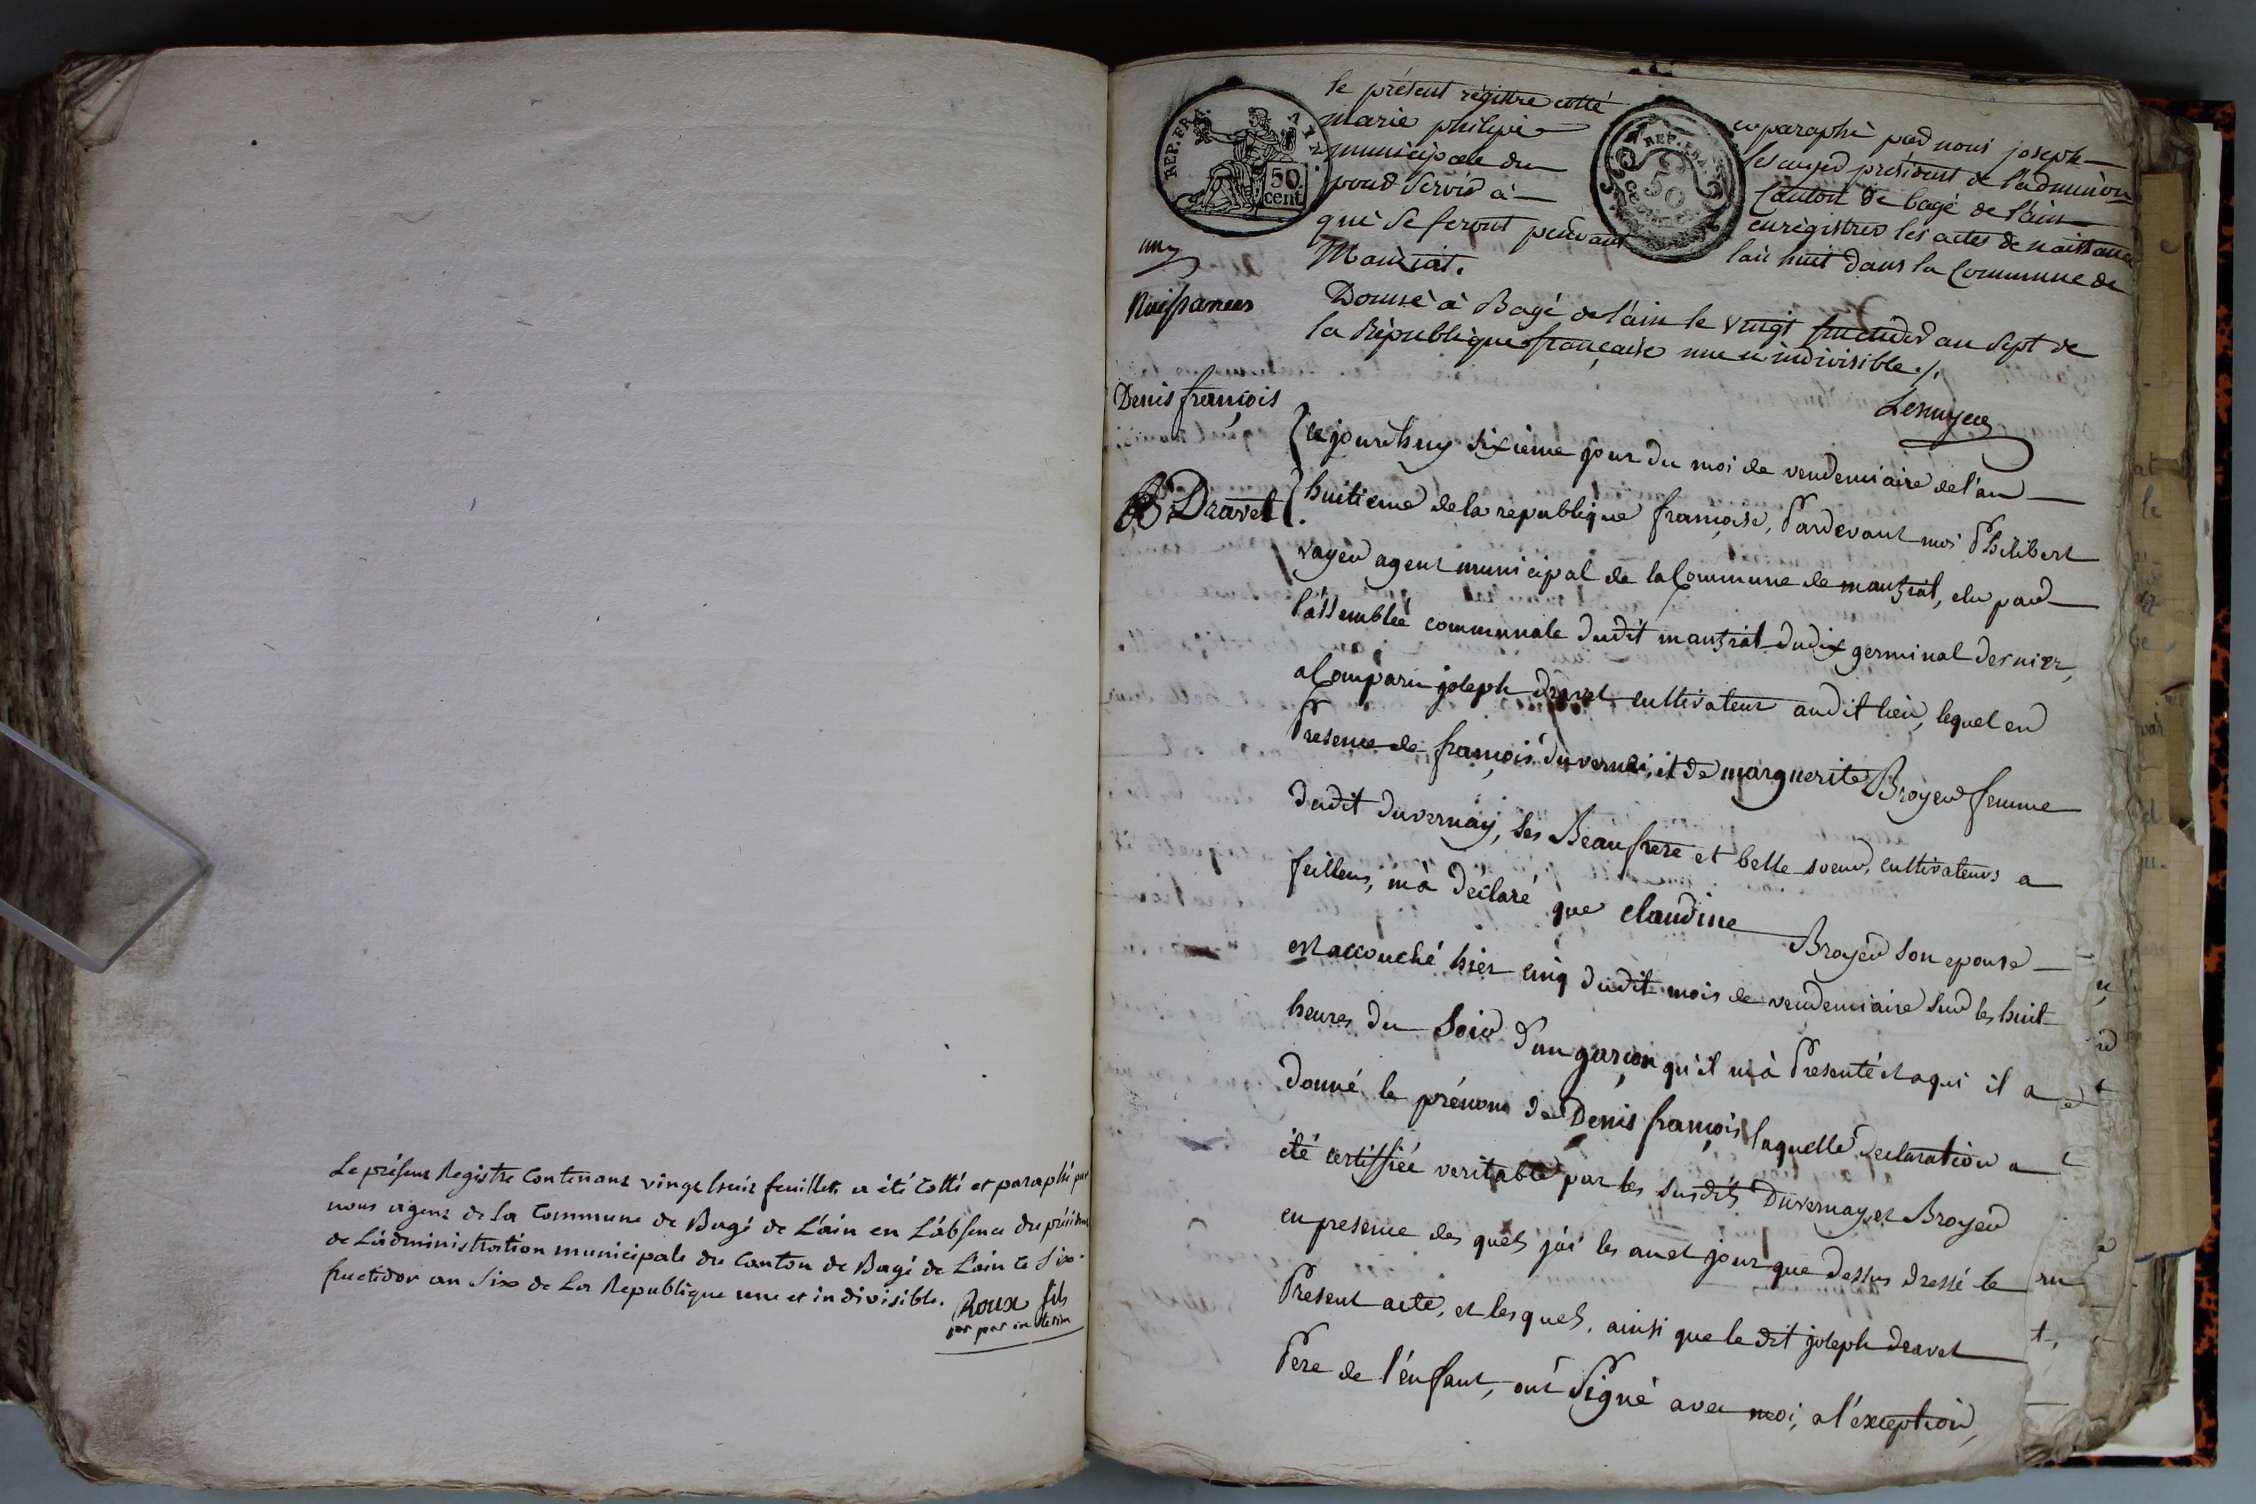 Le présent Registre Contenant vingt huit feuillets a été Cotté et paraphé par
nous agent de la Commune de Bagé de L'ain en L'absence du président
de L'administration municipale du Canton de Bagé de L'ain le Six
fructidor an Six de La Republique une et indivisible.
Roux fils
par interim
le présent régistre cotté et paraphé par nous joseph
marie philipe Lesnuyer président de l'adm̃inõn
municipale du Canton de bagé de l'ain
pour Servir à enrégistrer les actes de naissance
qui Se feront pendant l'an huit dans la Commune de
Manziat.
REP. FRA. 50. cent.
REP. FRA. 50
un
Naissances
Donné à Bagé de l'ain le vingt fructidor an Sept de
la République française une et indivisible ./.
Lesnuyer
Denis françois
Dravet
Cejourdhuy sixième jour du mois de vendemiaire de l'an
huitieme de la republique françoise, Pardevant moi Philibert
voyer agent municipal de la Commune de manziat, elu par
l'assemblée communale dudit manziat du dix germinal dernier,
a Comparu joseph dravet cultivateur audit lieu, lequel en
Presence de françois duvernai, et de marguerite Broyer femme
dudit duvernay, ses Beaufrere et belle soeur, cultivateurs a
feillens, m'à déclaré que claudine Broyer son epouse
est accouché hier cinq dudit mois de vendemiaire sur les huit
heures du Soir d'un garçon qu'il m'à Presenté et aqui il a
donné le prénom de Denis françois laquelle declaration a
été certiffiée veritable par les susdits Duvernay et Broyer
en presence des quels j'ai les an et jour que dessus dressé le
Present acte, et lesquels, ainsi que le dit joseph dravet
Pere de l'enfant, ont Signé avec moi, a l'exception